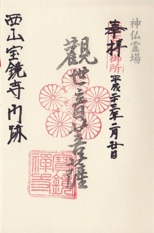 神仏霊場
奉拝
平成二十三年一月廿日
觀世音菩薩
西山宝鏡寺門跡